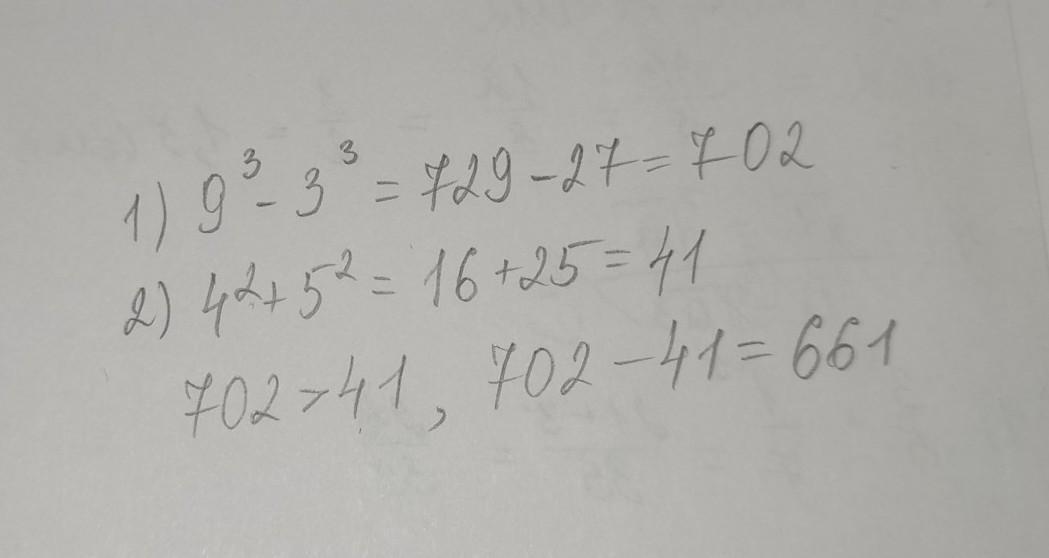 1) 9³ - 3³ = 729 - 27 = 702
2) 4² + 5² = 16 + 25 = 41
702 > 41, 702 - 41 = 661